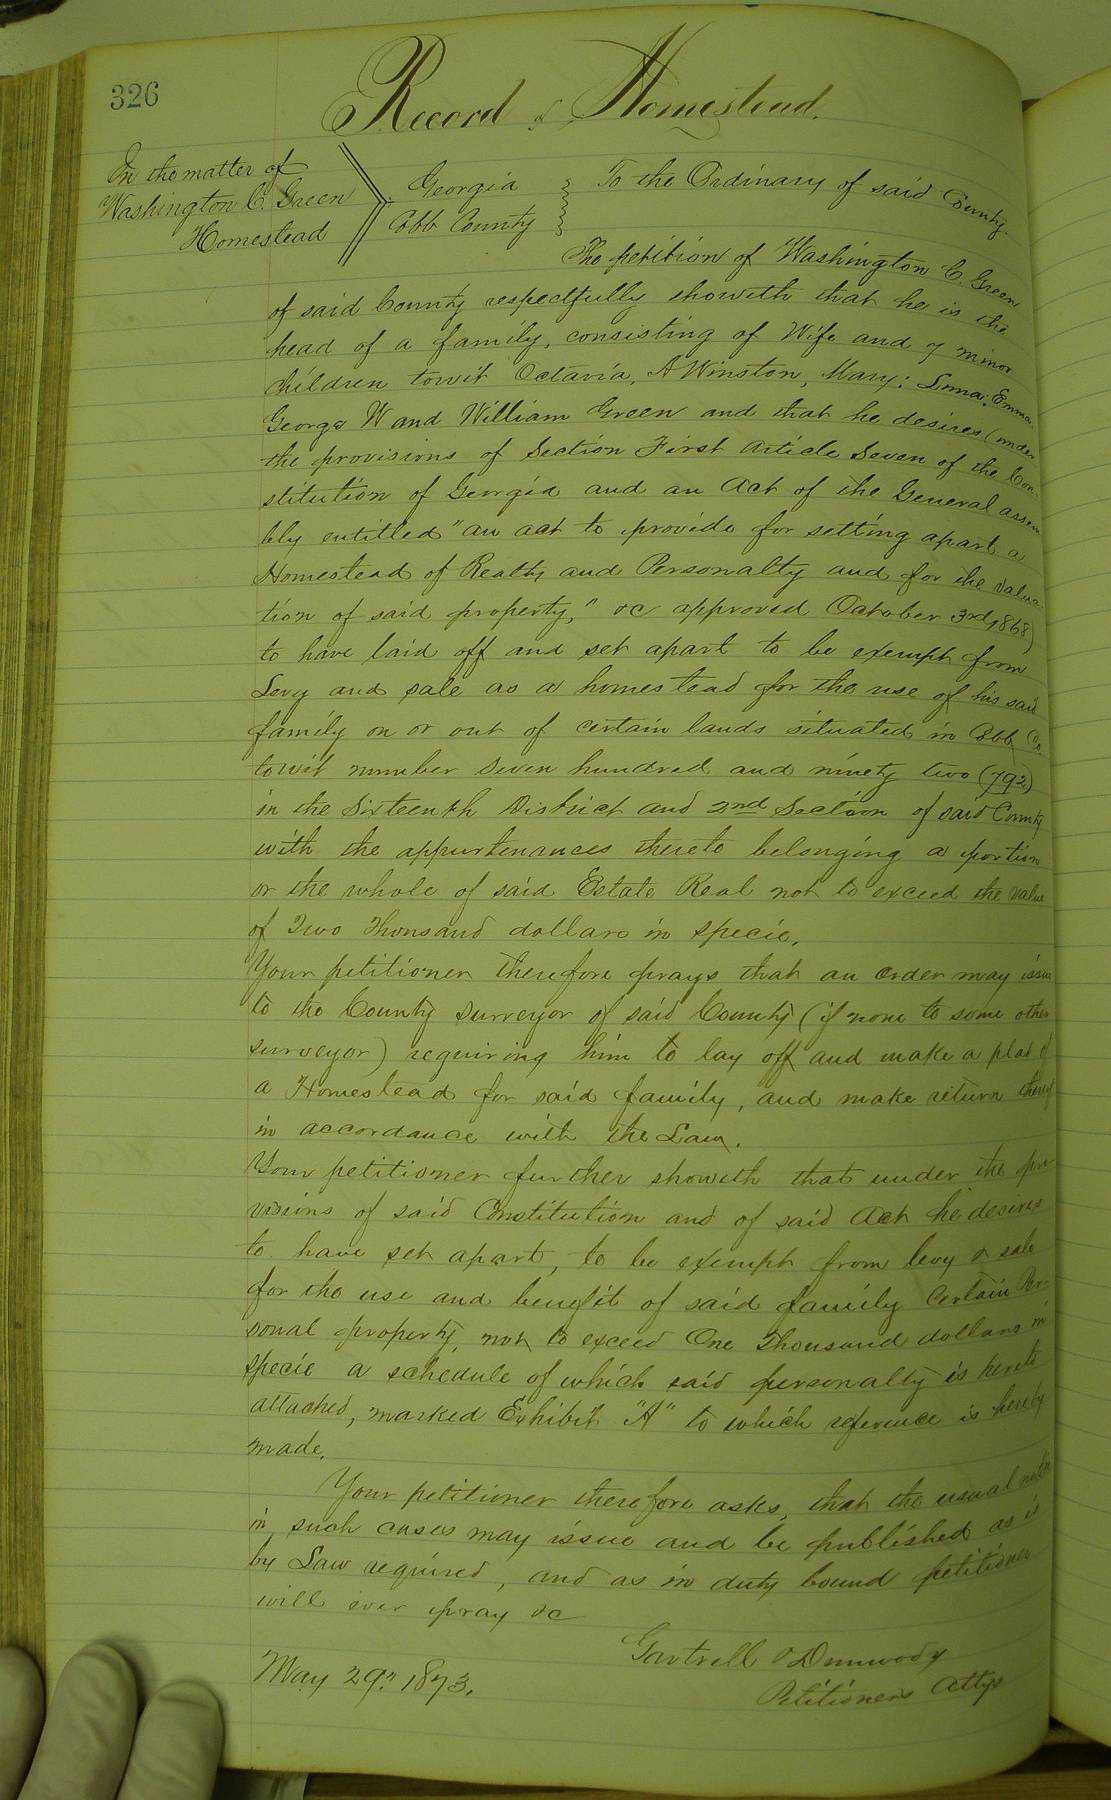 326
Record of Homestead.
In the matter of
Washington C. Green
Homestead
Georgia
Cobb County
To the Ordinary of said County.
The petition of Washington C. Green
of said County respectfully showeth that he is the
head of a family, consisting of Wife and 7 minor
children towit Octavia, A Winston, Mary; Emma,
George W and William Green and that he desires (under
the provisions of Section First Article Seven of the Con-
stitution of Georgia and an Act of the General assem
bly entitled "an act to provide for setting apart a
Homestead of Realty and Personalty and for the valua
tion of said property," &c approved October 3rd, 1868)
to have laid off and set apart to be exempt from
Levy and sale as a homestead for the use of his said
family on or out of certain lands situated in Cobb Co
towit number Seven hundred and ninety two (792)
in the Sixteenth District and 2nd Section of said County
with the appurtenances thereto belonging a portion
or the whole of said Estate Real not to exceed the value
of Two Thousand dollars in specie.
Your petitioner therefore prays that an order may issue
to the County Surveyor of said County (if none to some other
surveyor) requiring him to lay off and make a plat of
a Homestead for said family, and make return thereof
in accordance with the Law.
Your petitioner further showeth that under the pro
visions of said Constitution and of said Act he desires
to have set apart, to be exempt from levy & sale
for the use and benefit of said family Certain Per-
sonal property, not to exceed One Thousand dollars in
specie a schedule of which said personalty is hereto
attached, marked Exhibit "A" to which reference is hereby
made.
Your petitioner therefore asks, that the usual notice
in such cases may issue and be published as is
by Law required, and as in duty bound petitioner
will ever pray &c
Gartrell & Dunwody
Petitioners Attys
May 29" 1873.